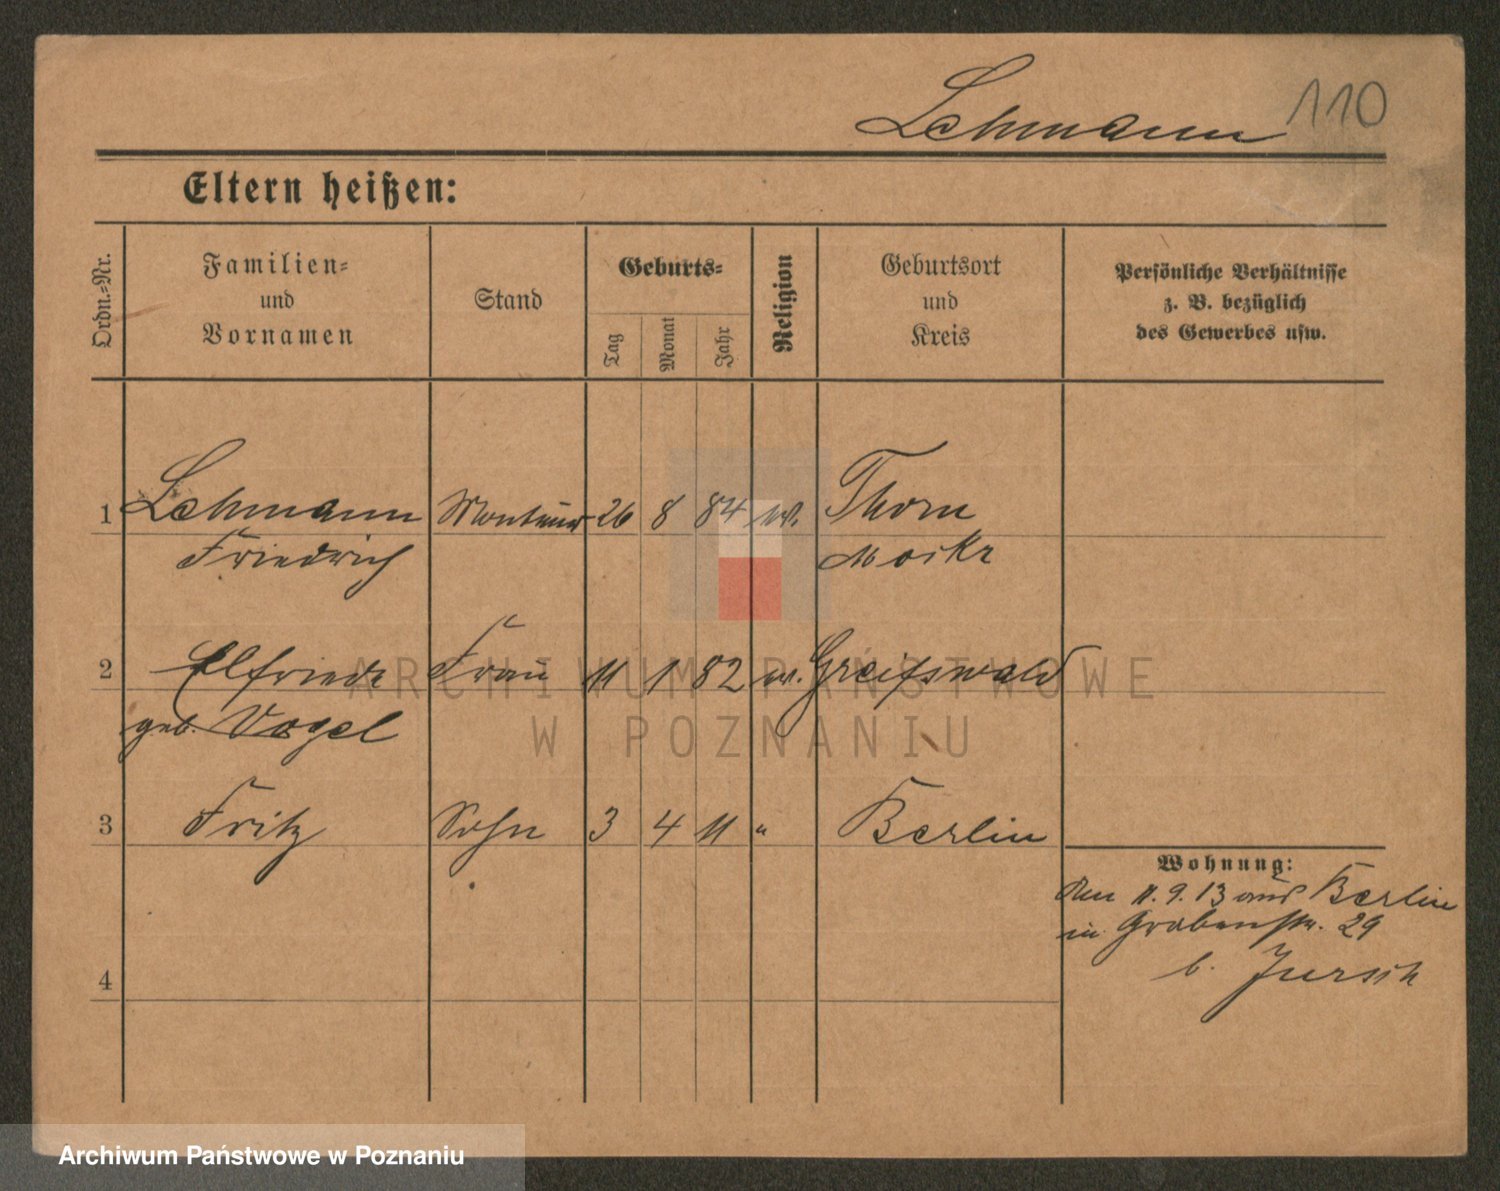 Lehmann 110
Eltern heißen:
Ordn.-Nr.
Familien-
und
Vornamen
Stand
Geburts-
Tag
Monat
Jahr
Religion
Geburtsort
und
Kreis
Persönliche Verhältnisse
z. B. bezüglich
des Gewerbes usw.
1 Lehmann Monteur 26 8 84 ev. Thorn
Friedrich Mockr
2 Elfriede Frau 11 1 82 ev. Greifswald
geb. Vogel
3 Fritz Sohn 3 4 11 " Berlin
Wohnung:
Den 11.9.13 aus Berlin
in Grabenstr. 29
b. Jursch
4
ARCHIWUM PAŃSTWOWE
W POZNANIU
Archiwum Państwowe w Poznaniu